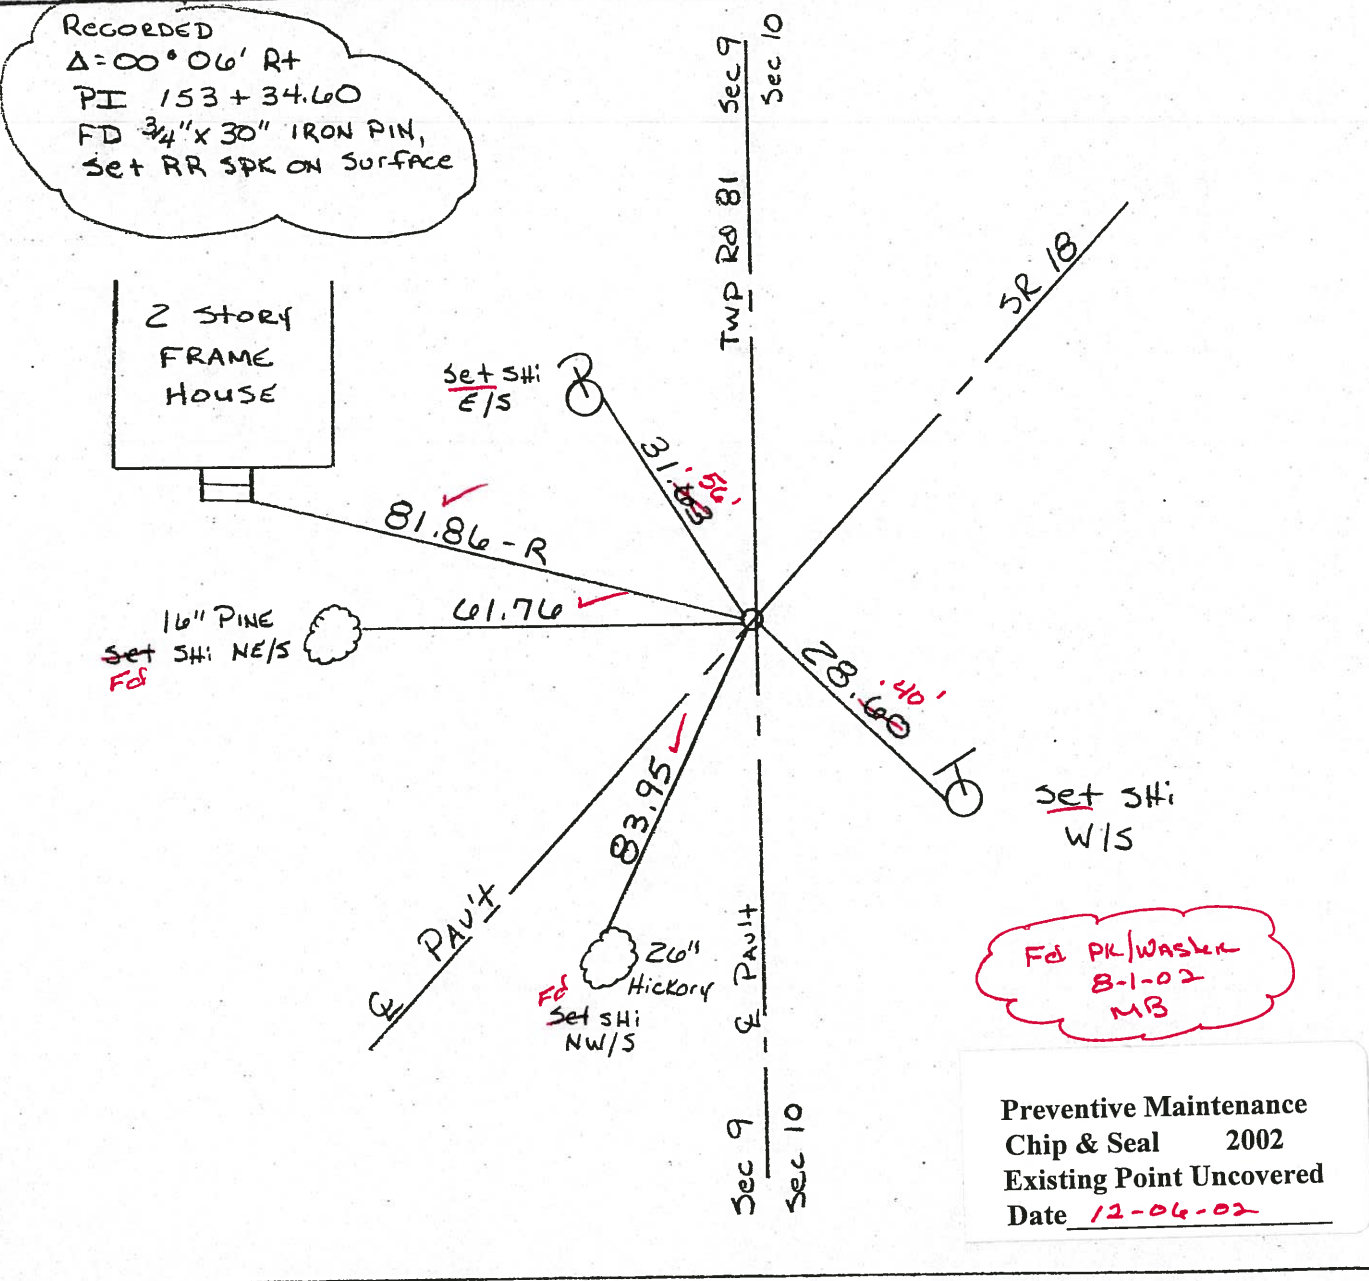 RECORDED
Δ=00°06' Rt
PI 153 + 34.60
FD 3/4" x 30" IRON PIN,
Set RR SPK ON SurfACE
Sec 9
Sec 10
TWP RD 81
SR 18
2 STORY
FRAME
HOUSE
Set SHi
E/S
31.
56'
81.86 - R
61.76
16" PINE
Set SHi NE/S
Fd
28.60
.40'
83.95
Set SHi
W/S
℄ PAV't
26"
Hickory
Fd
Set SHi
NW/S
℄ PAV't
Fd PK/WASHER
8-1-02
MB
Sec 9
Sec 10
Preventive Maintenance
Chip & Seal 2002
Existing Point Uncovered
Date 12-06-02